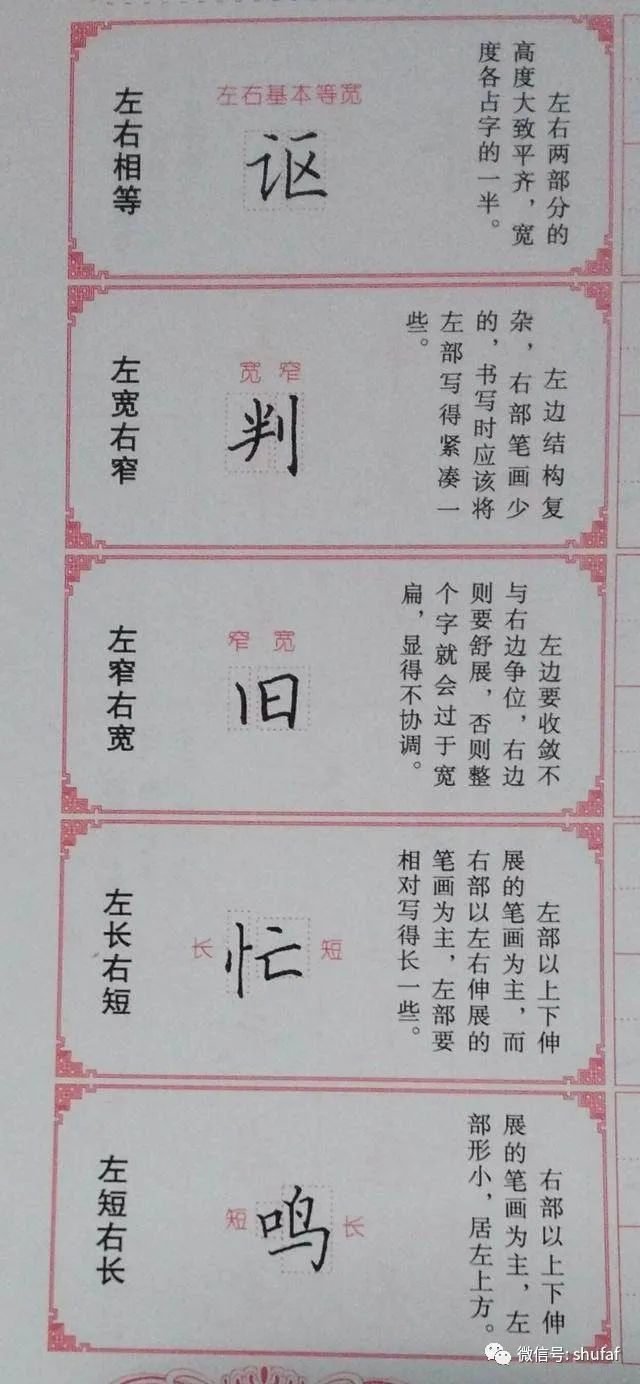 左右相等
左右基本等宽
讴
左右两部分的
高度大致平齐，宽
度各占字的一半。
左宽右窄
宽 窄
判
左边结构复
杂，右部笔画少
的，书写时应该将
左部写得紧凑一
些。
左窄右宽
窄 宽
旧
左边要收敛不
与右边争位，右边
则要舒展，否则整
个字就会过于宽
扁，显得不协调。
左长右短
长 忙 短
左部以上下伸
展的笔画为主，而
右部以左右伸展的
笔画为主，左部要
相对写得长一些。
左短右长
短 鸣 长
右部以上下伸
展的笔画为主，左
部形小，居左上方。
微信号: shufaf